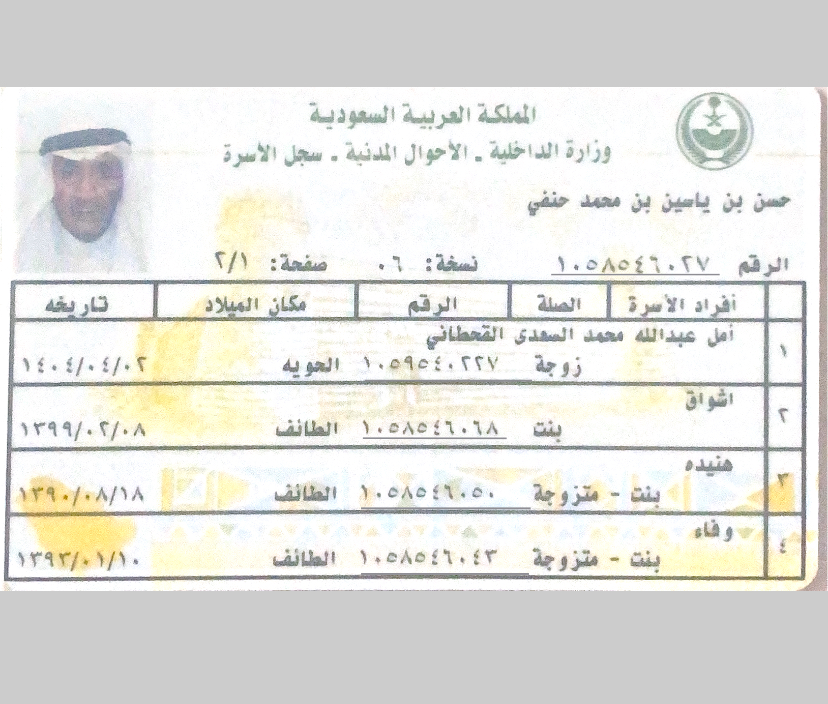 المملكة العربية السعودية
وزارة الداخلية ـ الأحوال المدنية ـ سجل الأسرة
حسن بن ياسين بن محمد حنفي
الرقم ١٠٥٨٥٤٦٠٢٧ نسخة: ٠٦ صفحة: ٢/١
أفراد الأسرة الصلة الرقم مكان الميلاد تاريخه
١ أمل عبدالله محمد السعدى القحطاني
زوجة ١٠٥٩٥٤٠٢٢٧ الحويه ١٤٠٤/٠٤/٠٢
٢ اشواق
بنت ١٠٥٨٥٤٦٠٦٨ الطائف ١٣٩٩/٠٢/٠٨
٣ هنيده
بنت - متزوجة ١٠٥٨٥٤٦٠٥٠ الطائف ١٣٩٠/٠٨/١٨
٤ وفاء
بنت - متزوجة ١٠٥٨٥٤٦٠٤٣ الطائف ١٣٩٣/٠١/١٠